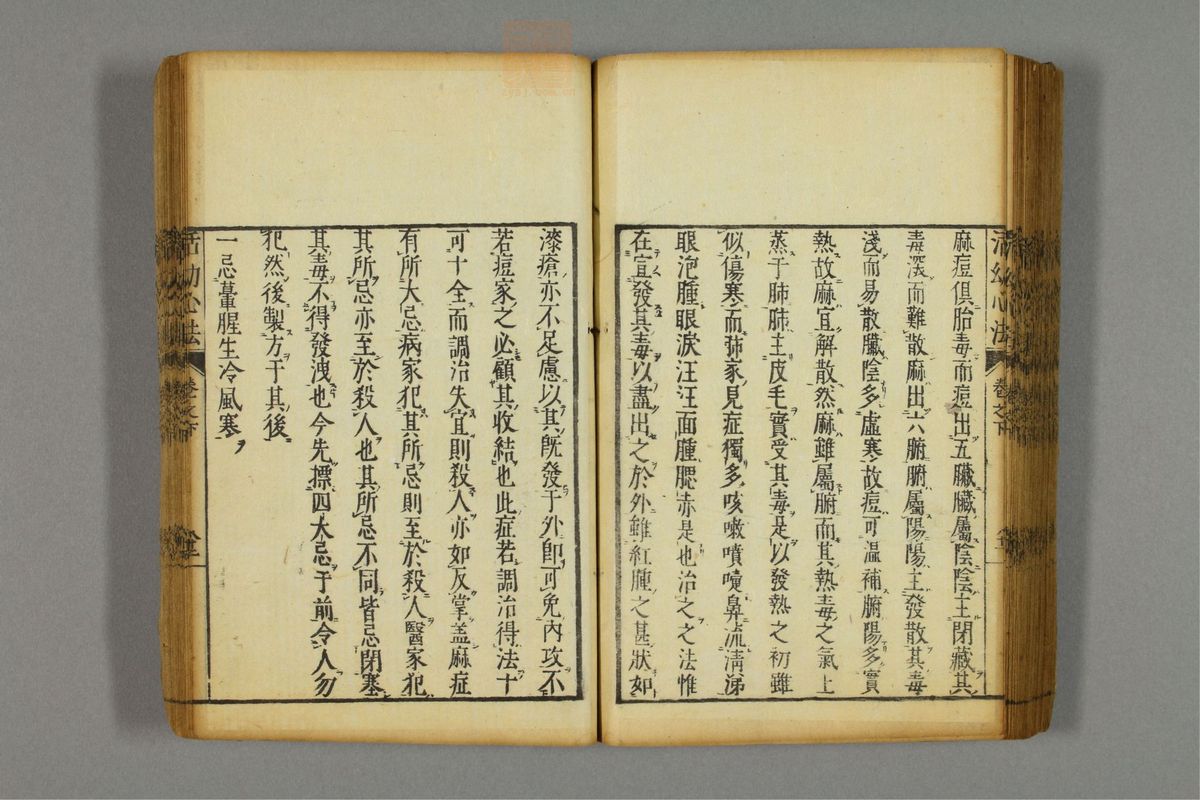 麻痘俱胎毒而痘出五臟臟屬陰陰主閉藏其
毒深而難散麻出六腑腑屬陽陽主發散其毒
淺而易散臟陰多虛寒故痘可溫補腑陽多實
熱故麻宜解散然麻雖屬腑而其熱毒之氣上
蒸于肺肺主皮毛實受其毒是以發熱之初雖
似傷寒而肺家見症獨多咳嗽噴嚏鼻流清涕
眼泡腫眼淚汪汪面腫腮赤是也治之之法惟
在宣發其毒以盡出之於外雖紅腫之甚狀如
漆瘡亦不足慮以其旣發于外即可免內攻不
若痘家之必顧其收結也此症若調治得法十
可十全而調治失宜則殺人亦如反掌盖麻症
有所大忌病家犯其所忌則至於殺人醫家犯
其所忌亦至於殺人也其所忌不同皆忌閉塞
其毒不得發洩也今先摽四大忌于前令人勿
犯然後製方于其後
一忌葷腥生冷風寒
活幼心法
卷之下
活幼心法
卷之下